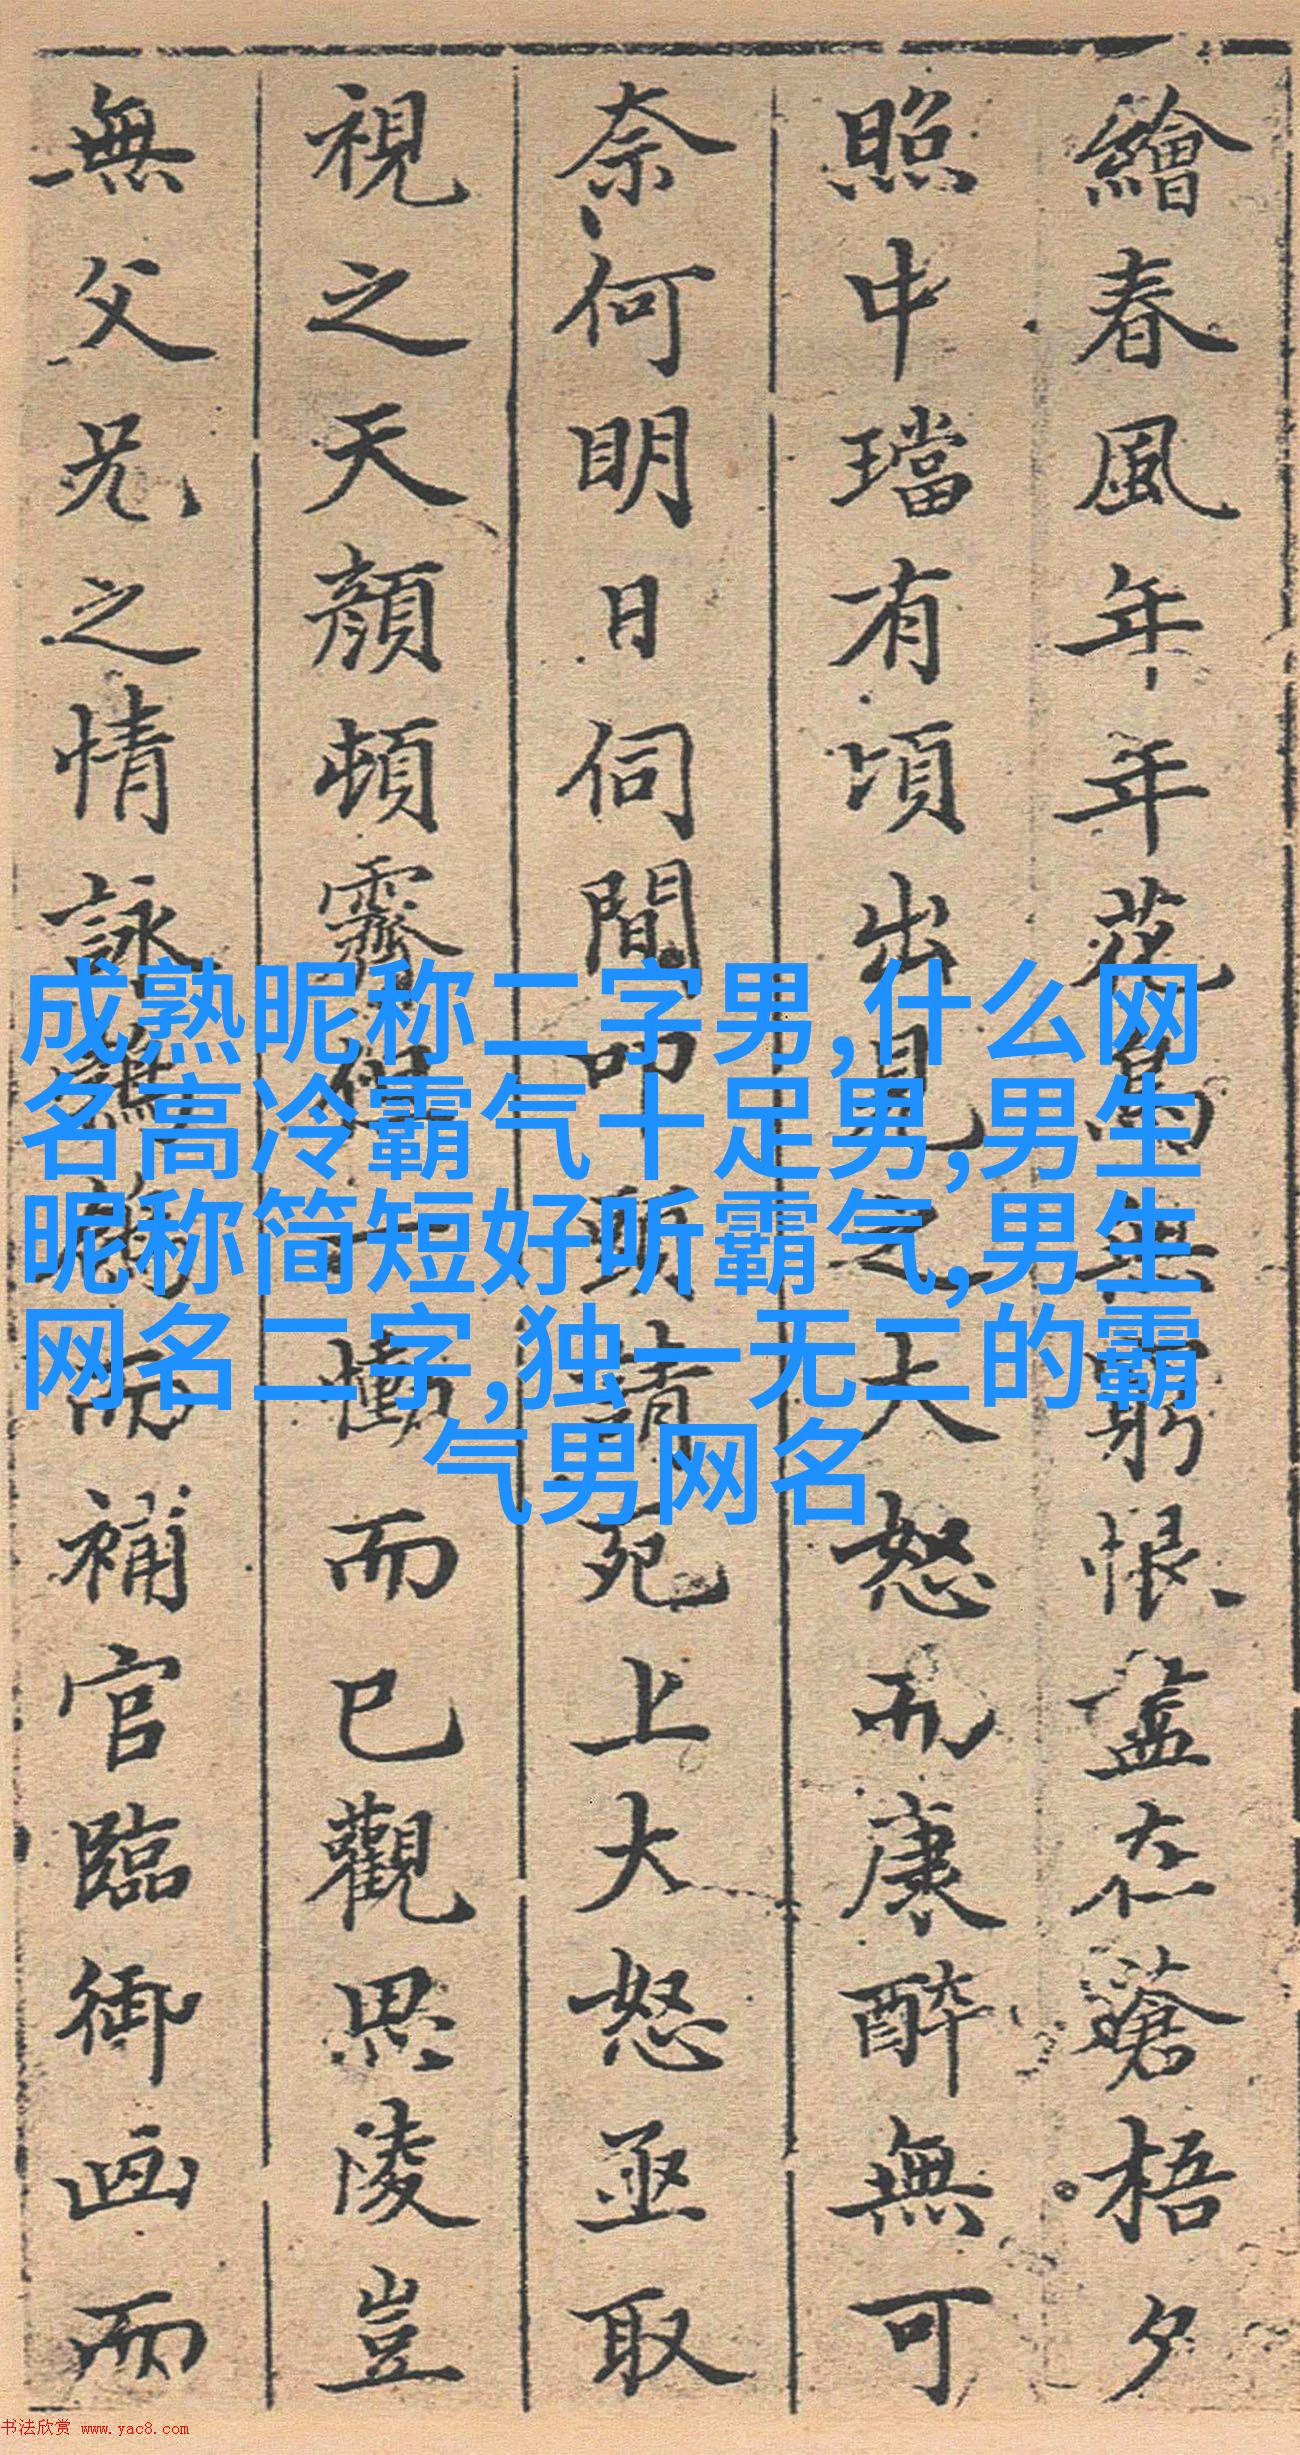 繪春風年年花鳥無窮恨盡在蒼梧夕
照中璫有頃出見之大怒而康醉無可
奈何明日伺間叩頭請死上大怒亟取
視之天顏頓霽但一慟而已觀思陵豈
無父兄之情詠而補官臨御画而
成熟昵称二字男,什么网
名高冷霸气十足男,男生
昵称简短好听霸气,男生
网名二字,独一无二的霸
气男网名
书法欣赏 www.yac8.com